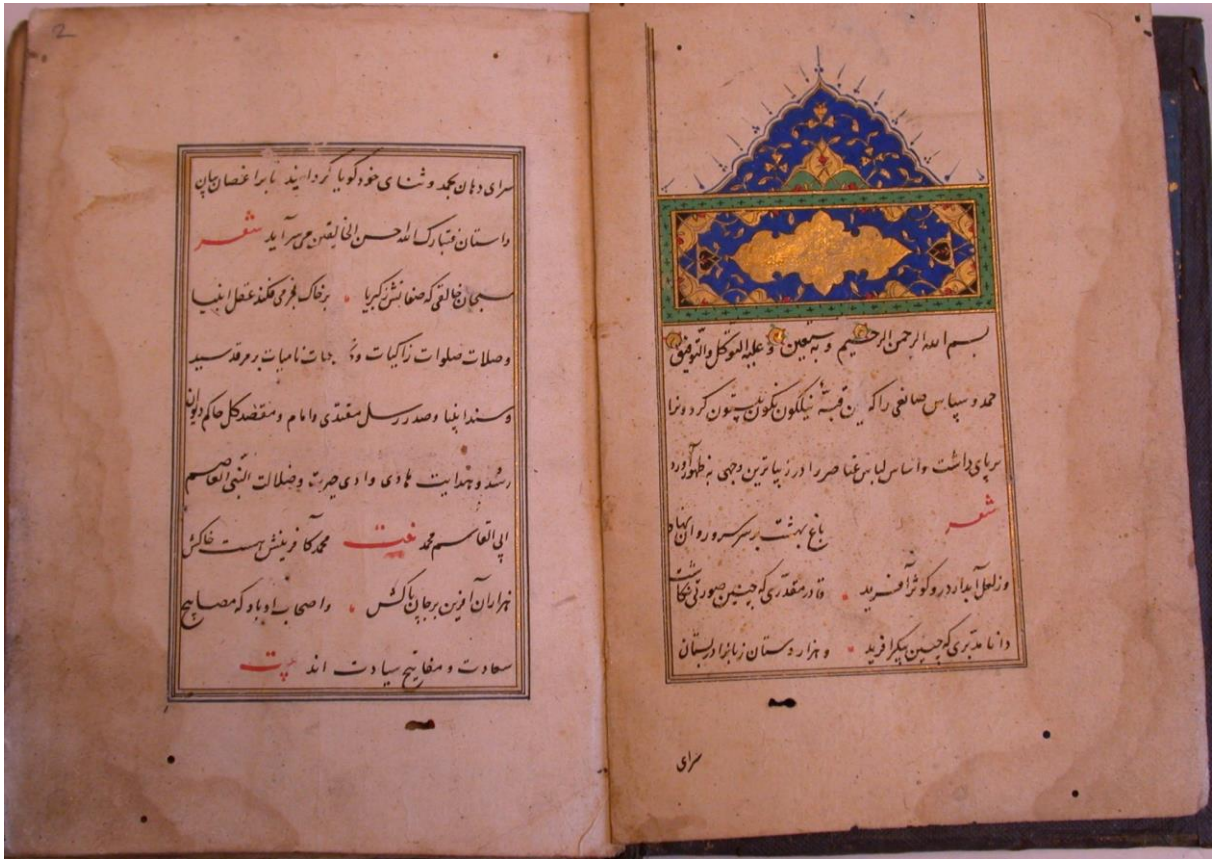 بسم الله الرحمن الرحیم و به نستعین و علیه التوکل والتوفیق
حمد و سپاس صانعی را که این قبهٔ نیلگون نگون بیستون کردونرا
برپای داشت و اساس لباس عناصر را در زیباترین وجهی به ظهور آورد
شعر
باغ بهشت بر سر سرو روان نهاد
وز لعل آبدار در و کوثر آفرید قادر مقدری که چنین صورتی نگاشت
دانا مدبری که چنین پیکر آفرید و هزار دستان زبانرا در بستان
سرای
2
سرای دهان بحمد و ثنای خود گویا گردانید تا بر اغصان بیان
داستان فتبارک الله احسن الخالقین می سرآید شعر
سبحان خالقی که صفاتش ز کبریا بر خاک عجز می فکند عقل انبیا
و صلات صلوات زاکیات و تحیات نامیات بر مرقد سید
و سند انبیا و صدر رسل مقتدی و امام و مقصد کل حاکم دیوان
رشد و هدایت هادی وادی حیرت و ضلالت النبی العاصم
ابی القاسم محمد محمد کآفرینش هست خاکش
هزاران آفرین بر جان پاکش و اصحاب او باد که مصابیح
سعادت و مفاتیح سیادت اند